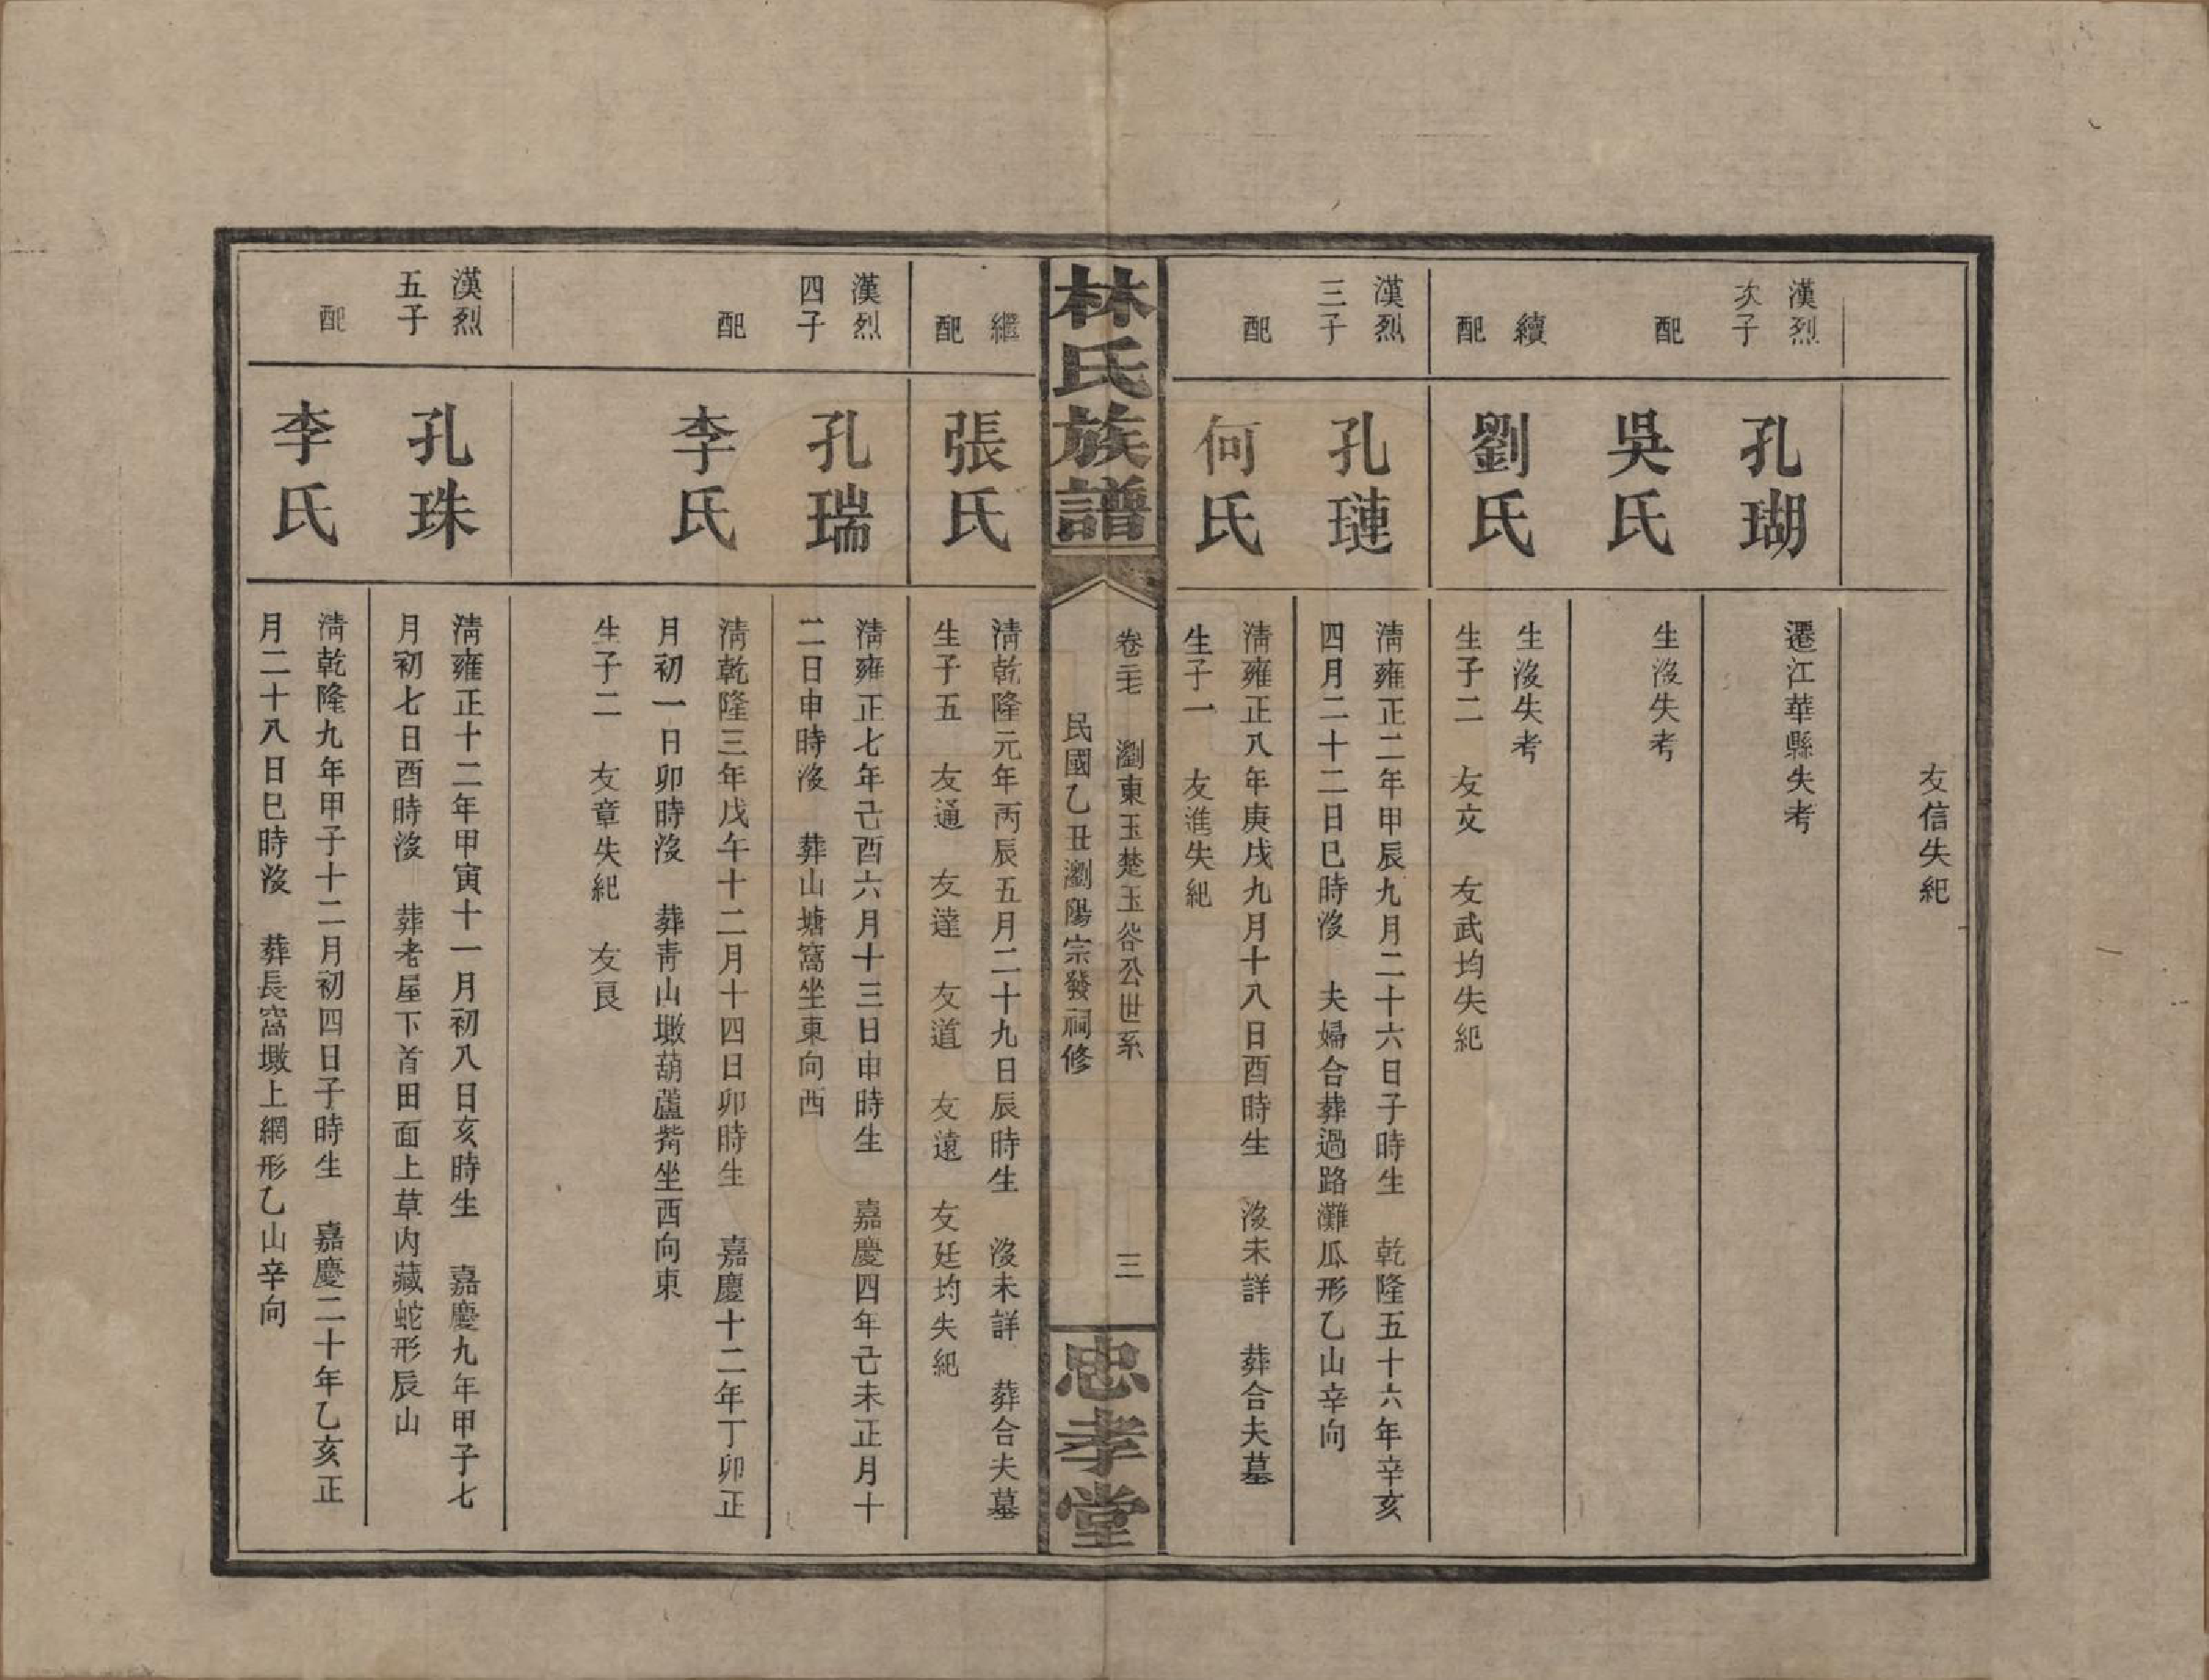 友信失紀
漢烈
次子
孔瑚
遷江華縣失考
配
吳氏
生歿失考
續
配
劉氏
生歿失考
生子二　友文　友武均失紀
漢烈
三子
孔璉
淸雍正二年甲辰九月二十六日子時生　乾隆五十六年辛亥
四月二十二日巳時歿　夫婦合葬過路灘瓜形乙山辛向
配
何氏
淸雍正八年庚戌九月十八日酉時生　歿未詳　葬合夫墓
生子一　友進失紀
林氏族譜
卷二七　瀏東玉楚玉谷公世系　三
民國乙丑瀏陽宗發祠修
忠孝堂
繼
配
張氏
淸乾隆元年丙辰五月二十九日辰時生　歿未詳　葬合夫墓
生子五　友通　友達　友道　友遠　友廷均失紀
漢烈
四子
孔瑞
淸雍正七年己酉六月十三日申時生　嘉慶四年己未正月十
二日申時歿　葬山塘窩坐東向西
配
李氏
淸乾隆三年戊午十二月十四日卯時生　嘉慶十二年丁卯正
月初一日卯時歿　葬靑山墩葫蘆觜坐西向東
生子二　友章失紀　友良
漢烈
五子
孔珠
淸雍正十二年甲寅十一月初八日亥時生　嘉慶九年甲子七
月初七日酉時歿　葬老屋下首田面上草內藏蛇形辰山
配
李氏
淸乾隆九年甲子十二月初四日子時生　嘉慶二十年乙亥正
月二十八日巳時歿　葬長窩墩上網形乙山辛向